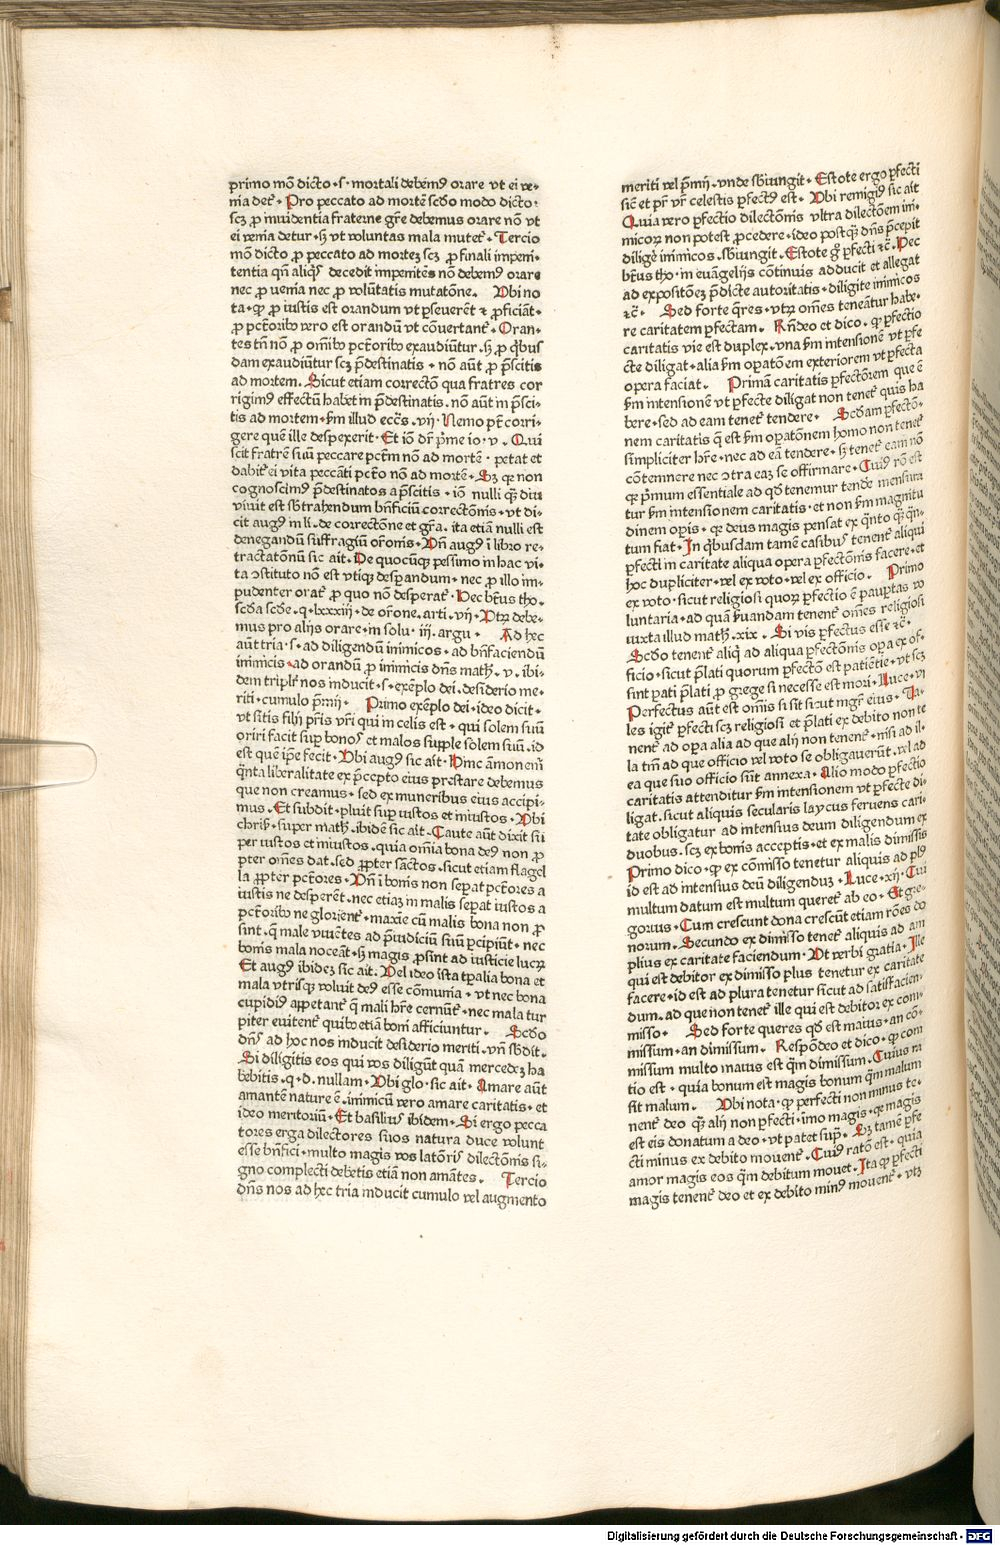 primo mō dicto · s · mortali debemꝰ orare vt ei ve-
nia det᷑ · Pro peccato ad mortē scďo modo dicto ·
scꝫ ꝓ inuidentia fraterne gr̄e debemus orare nō vt
ei venia detur · ſꝫ vt voluntas mala mutet᷑ · Tercio
mō dicto ꝓ peccato ad morteꝫ scꝫ ꝓ finali impeni-
tentia qn̄ aliqͥs decedit impenitēs nō debemꝰ orare
nec ꝓ venia nec ꝓ volūtatis mutatōne. Vbi no
ta · ꝙ ꝓ iustis est orandum vt ꝑseuerēt ⁊ ꝓficiāt ·
ꝓ pctōribꝰ vero est orandū vt cōuertant᷑ · Oran-
tes tn̄ nō ꝓ om̄ibꝰ pctōribꝰ exaudiūtur · ſꝫ ꝓ qͥbus
dam exaudiūtur scꝫ p̄destinatis · nō aūt ꝓ p̄scitis
ad mortem. Sicut etiam correctō qua fratres cor
rigimꝰ effectū habet in p̄destinatis. nō aūt in p̄sci-
tis ad mortem · ẜm illud eccl̄s · vij · Nemo pt̄ corri-
gere quē ille despexerit · Et iō dr̄ p̄me io · v · Qui
scit fratrē suū peccare pctm̄ nō ad mortē · petat et
dabit᷑ ei vita peccāti pctō nō ad mortē · Sꝫ qꝛ non
cognoscimꝰ p̄destinatos a p̄scitis · iō nulli qͣꝫ diu
viuit est sb̄trahendum bn̄ficiū correctōnis · vt di-
cit augꝰ in li · de correctōne et gr̄a. ita etiā nulli est
denegandū suffragiū or̄onis · Vn̄ augꝰ ī libro re-
tractatōnū sic ait · De quocūqꝫ pessimo in hac vi-
ta ↄstituto nō est vtiqꝫ desꝑandum · nec ꝓ illo im-
pudenter orat᷑ ꝓ quo nō desperat᷑ · Hec bt̄us tho.
scďa scďe · q · lxxxiij · de or̄one. arti · vij · Vtꝝ debe-
mus pro alijs orare · in solu · iij. argu · Ad hec
aūt tria · s · ad diligendū inimicos · ad bn̄faciendū
inimicis · ad orandū ꝓ inimicis dn̄s math̄ · v · ibi-
dem triplr̄ nos inducit · s · exēplo dei · desiderio me-
riti · cumulo p̄mij · Primo exēplo dei · ideo dicit ·
vt sitis filij pr̄is vr̄i qui in celis est · qui solem suū
oriri facit suꝑ bonos et malos supple solem suū · id
est quē ip̄e fecit · Vbi augꝰ sic ait · Hinc āmonem̄
qͣnta liberalitate ex p̄cepto eius prestare debemus
que non creamus · sed ex muneribus eius accipi-
mus · Et subdit · pluit suꝑ iustos et iniustos · Vbi
chris̄ · super math̄ · ibidē sic ait · Caute aūt dixit su
per iustos et iniustos · quia om̄ia bona deꝰ non ꝓ
pter om̄es dat · sed ꝓpter sāctos · sicut etiam flagel
la ꝓpter pctōres · Vn̄ ī bonis non seꝑat pctōres a
iustis ne desperēt. nec etiaꝫ in malis seꝑat iustos a
pctōribꝰ ne glorient᷑ · maxīe cū malis bona non ꝓ
sint · qͥ male viuētes ad p̄iudiciū suū ꝑcipiūt · nec
bonis mala noceāt · ſꝫ magis ꝓsint ad iusticie lucꝝ
Et augꝰ ibideꝫ sic ait. Vel ideo ista tꝑalia bona et
mala vtrisqꝫ voluit deꝰ esse cōmunia · vt nec bona
cupidiꝰ appetant᷑ q̄ mali hr̄e cernūt᷑ · nec mala tur
piter euitent᷑ quibꝰ etiā boni afficiuntur. Scďo
dn̄s ad hoc nos inducit desiderio meriti · vn̄ sb̄dit.
Si diligitis eos qui vos diligūt quā mercedeꝫ ha
bebitis · q · d · nullam · Vbi glo · sic ait · Amare aūt
amantē nature ē · inimicū vero amare caritatis · et
ideo meritoriū · Et basilius ibidem · Si ergo pecca
tores erga dilectores suos natura duce volunt
esse bn̄fici · multo magis vos latōris dilectōnis si-
gno complecti debetis etiā non amātes. Tercio
dn̄s nos ad hec tria inducit cumulo vel augmento
meriti vel p̄mij · vnde sb̄iungit · Estote ergo ꝑfecti
sic̄ et pr̄ vr̄ celestis ꝑfectꝰ est · Vbi remigiꝰ sic ait
Quia vero ꝑfectio dilectōnis vltra dilectōem ini-
micoꝝ non potest ꝓcedere · ideo postqͣꝫ dn̄s p̄cepit
diligē inimicos · sb̄iungit · Estote gͦ ꝑfecti ⁊c̄ · Hec
bt̄us tho · in euāgelijs cōtinuis adducit et allegat
ad expositōeꝫ p̄dicte autoritatis · diligite inimicos
⁊c̄ · Sed forte q̄res · vtꝝ om̄es teneātur habe-
re caritatem ꝑfectam · Rn̄deo et dico · ꝙ ꝑfectio
caritatis vie est duplex · vna ẜm intensionē vt ꝑfe
cte diligat · alia ẜm oꝑatōem exteriorem vt ꝑfecta
opera faciat. Primā caritatis ꝑfectōem que ē
ẜm intensionē vt ꝑfecte diligat non tenet᷑ quis ha
bere · sed ad eam tenet᷑ tendere · Scďam ꝑfectō-
nem caritatis q̄ est ẜm oꝑatōnem homo non tenet᷑
simpliciter hr̄e · nec ad eā tendere · ſꝫ tenet᷑ eam nō
cōtemnere nec ↄtra eaꝫ se offirmare · Cuiꝰ rō est
qꝛ p̄mum essentiale ad qď tenemur tende mensura
tur ẜm intensionem caritatis · et non ẜm magnitu
dinem oꝑis · qꝛ deus magis pensat ex qͣnto qͣꝫ qn̄-
tum fiat · In qͥbusdam tamē casibus tenent᷑ aliqui
ꝑfecti in caritate aliqua opera ꝑfectōnis facere · et
hoc dupliciter · vel ex voto · vel ex officio. Primo
ex voto · sicut religiosi quoꝝ ꝑfectio ē pauꝑtas vo
luntaria · ad quā ẜuandam tenent᷑ om̄es religiosi
iuxta illud math̄ · xix · Si vis ꝑfectus esse ⁊c̄ ·
Scďo tenent᷑ aliqͥ ad aliqua ꝑfectōnis oꝑa ex of-
ficio · sicut p̄lati quorum ꝑfectō est patiētie · vt scꝫ
sint ꝑati p̄lati ꝓ grege si necesse est mori · Luce · vi
Perfectus aūt est om̄is si sit sicut mgr̄ eius · Ta-
les igit᷑ ꝑfecti scꝫ religiosi et p̄lati ex debito non te
nent᷑ ad oꝑa alia ad que alij non tenent᷑ · nisi ad il-
la tm̄ ad que officio vel voto se obligauerūt · vel ad
ea que suo officio sūt annexa · Alio modo ꝑfectio
caritatis attenditur ẜm intensionem vt ꝑfecte di-
ligat · sicut aliquis secularis laycus feruens cari-
tate obligatur ad intensius deum diligendum ex
duobus · scꝫ ex bonis acceptis · et ex malis dimissis
Primo dico · ꝙ ex cōmisso tenetur aliquis ad plꝰ
id est ad intensius deū diligenduꝫ · Luce · xij · Cui
multum datum est multum queret᷑ ab eo · Et gre-
gorius · Cum crescunt dona crescūt etiam rōes do
norum. Secundo ex dimisso tenet᷑ aliquis ad am
plius ex caritate faciendum · Vt verbi gratia · Ille
qui est debitor ex dimisso plus tenetur ex caritate
facere · id est ad plura tenetur sicut ad satisfacien-
dum. ad que non tenet᷑ ille qui est debitor ex com-
misso · Sed forte queres qď est maius · an cō-
missum · an dimissum. Respōdeo et dico · ꝙ com
missum multo maius est qͣm dimissum · Cuius ra
tio est · quia bonum est magis bonum qͣm malum
sit malum. Vbi nota · ꝙ perfecti non minus te-
nent᷑ deo qͣꝫ alij non ꝑfecti · imo magis · qꝛ magis
est eis donatum a deo · vt patet supͣ · Sꝫ tamē ꝑfe
cti minus ex debito mouent᷑ · Cuiꝰ ratō est · quia
amor magis eos qͣm debitum mouet · Ita ꝙ ꝑfecti
magis tenent᷑ deo et ex debito minꝰ mouent᷑ · vtꝫ
Digitalisierung gefördert durch die Deutsche Forschungsgemeinschaft - DFG